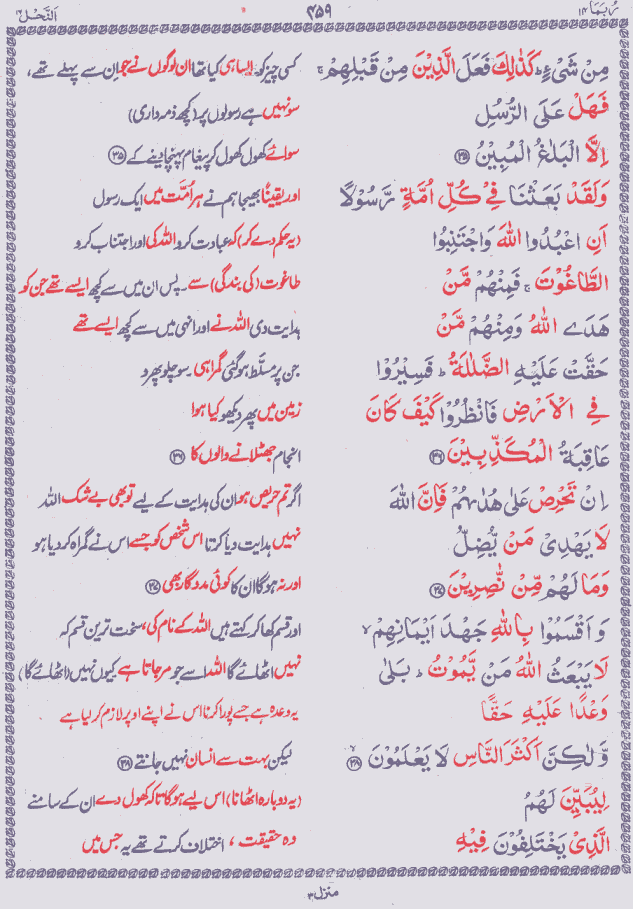 رُبَمَا ۱۴ ۴۵۹ اَلنَّحْل ۱۶
مِنْ شَیْءٍ ؕ کَذٰلِکَ فَعَلَ الَّذِیْنَ مِنْ قَبْلِهِمْ ۚ کسی چیز کو۔ ایسا ہی کیا تھا ان لوگوں نے جو اِن سے پہلے تھے،
فَهَلْ عَلَی الرُّسُلِ سو نہیں ہے رسولوں پر (کچھ ذمہ داری)
اِلَّا الْبَلٰغُ الْمُبِیْنُ ﴿۳۵﴾ سوائے کھول کھول کر پیغام پہنچا دینے کے ﴿۳۵﴾
وَلَقَدْ بَعَثْنَا فِیْ کُلِّ اُمَّةٍ رَّسُوْلًا اور یقیناً بھیجا ہم نے ہر اُمّت میں ایک رسول
اَنِ اعْبُدُوا اللّٰهَ وَاجْتَنِبُوا (یہ حکم دے کر) کہ عبادت کرو اللہ کی اور اجتناب کرو
الطَّاغُوْتَ ۚ فَمِنْهُمْ مَّنْ طاغوت (کی بندگی) سے۔ پس ان میں سے کچھ ایسے تھے جن کو
هَدَی اللّٰهُ وَمِنْهُمْ مَّنْ ہدایت دی اللہ نے اور انہی میں سے کچھ ایسے تھے
حَقَّتْ عَلَیْهِ الضَّلٰلَةُ ؕ فَسِیْرُوْا جن پر مسلّط ہو گئی گمراہی۔ سو چلو پھرو
فِی الْاَرْضِ فَانْظُرُوْا کَیْفَ کَانَ زمین میں پھر دیکھو کیا ہوا
عَاقِبَةُ الْمُکَذِّبِیْنَ ﴿۳۶﴾ انجام جھٹلانے والوں کا ﴿۳۶﴾
اِنْ تَحْرِصْ عَلٰی هُدٰىهُمْ فَاِنَّ اللّٰهَ اگر تم حریص ہو ان کی ہدایت کے لیے تو بھی بے شک اللہ
لَا یَهْدِیْ مَنْ یُّضِلُّ نہیں ہدایت دیا کرتا اس شخص کو جسے اس نے گمراہ کر دیا ہو
وَمَا لَهُمْ مِّنْ نّٰصِرِیْنَ ﴿۳۷﴾ اور نہ ہو گا ان کا کوئی مددگار بھی ﴿۳۷﴾
وَ اَقْسَمُوْا بِاللّٰهِ جَهْدَ اَیْمَانِهِمْ ۙ اور قسم کھا کر کہتے ہیں اللہ کے نام کی، سخت ترین قسم کہ
لَا یَبْعَثُ اللّٰهُ مَنْ یَّمُوْتُ ؕ بَلٰی نہیں اٹھائے گا اللہ اسے جو مر جاتا ہے کیوں نہیں (اٹھائے گا)
وَعْدًا عَلَیْهِ حَقًّا یہ وعدہ ہے جسے پورا کرنا اس نے اپنے اوپر لازم کر لیا ہے
وَّلٰکِنَّ اَکْثَرَ النَّاسِ لَا یَعْلَمُوْنَ ﴿۳۸﴾ لیکن بہت سے انسان نہیں جانتے ﴿۳۸﴾
لِیُبَیِّنَ لَهُمُ (یہ دوبارہ اٹھانا) اس لیے ہو گا تاکہ کھول دے ان کے سامنے
الَّذِیْ یَخْتَلِفُوْنَ فِیْهِ وہ حقیقت، اختلاف کرتے تھے یہ جس میں
منزل ۳